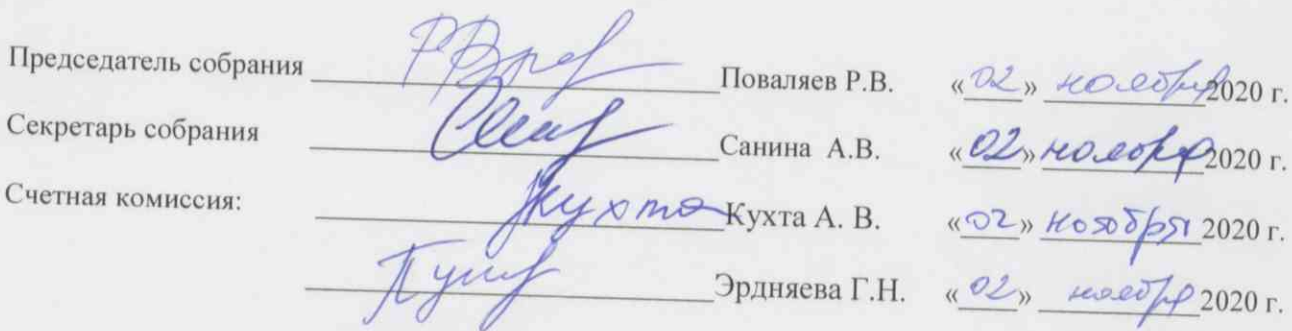 Председатель собрания Поваляев Р.В. «02» ноября 2020 г.
Секретарь собрания Санина А.В. «02» ноября 2020 г.
Счетная комиссия: Кухта Кухта А. В. «02» ноября 2020 г.
Эрдняева Г.Н. «02» ноября 2020 г.